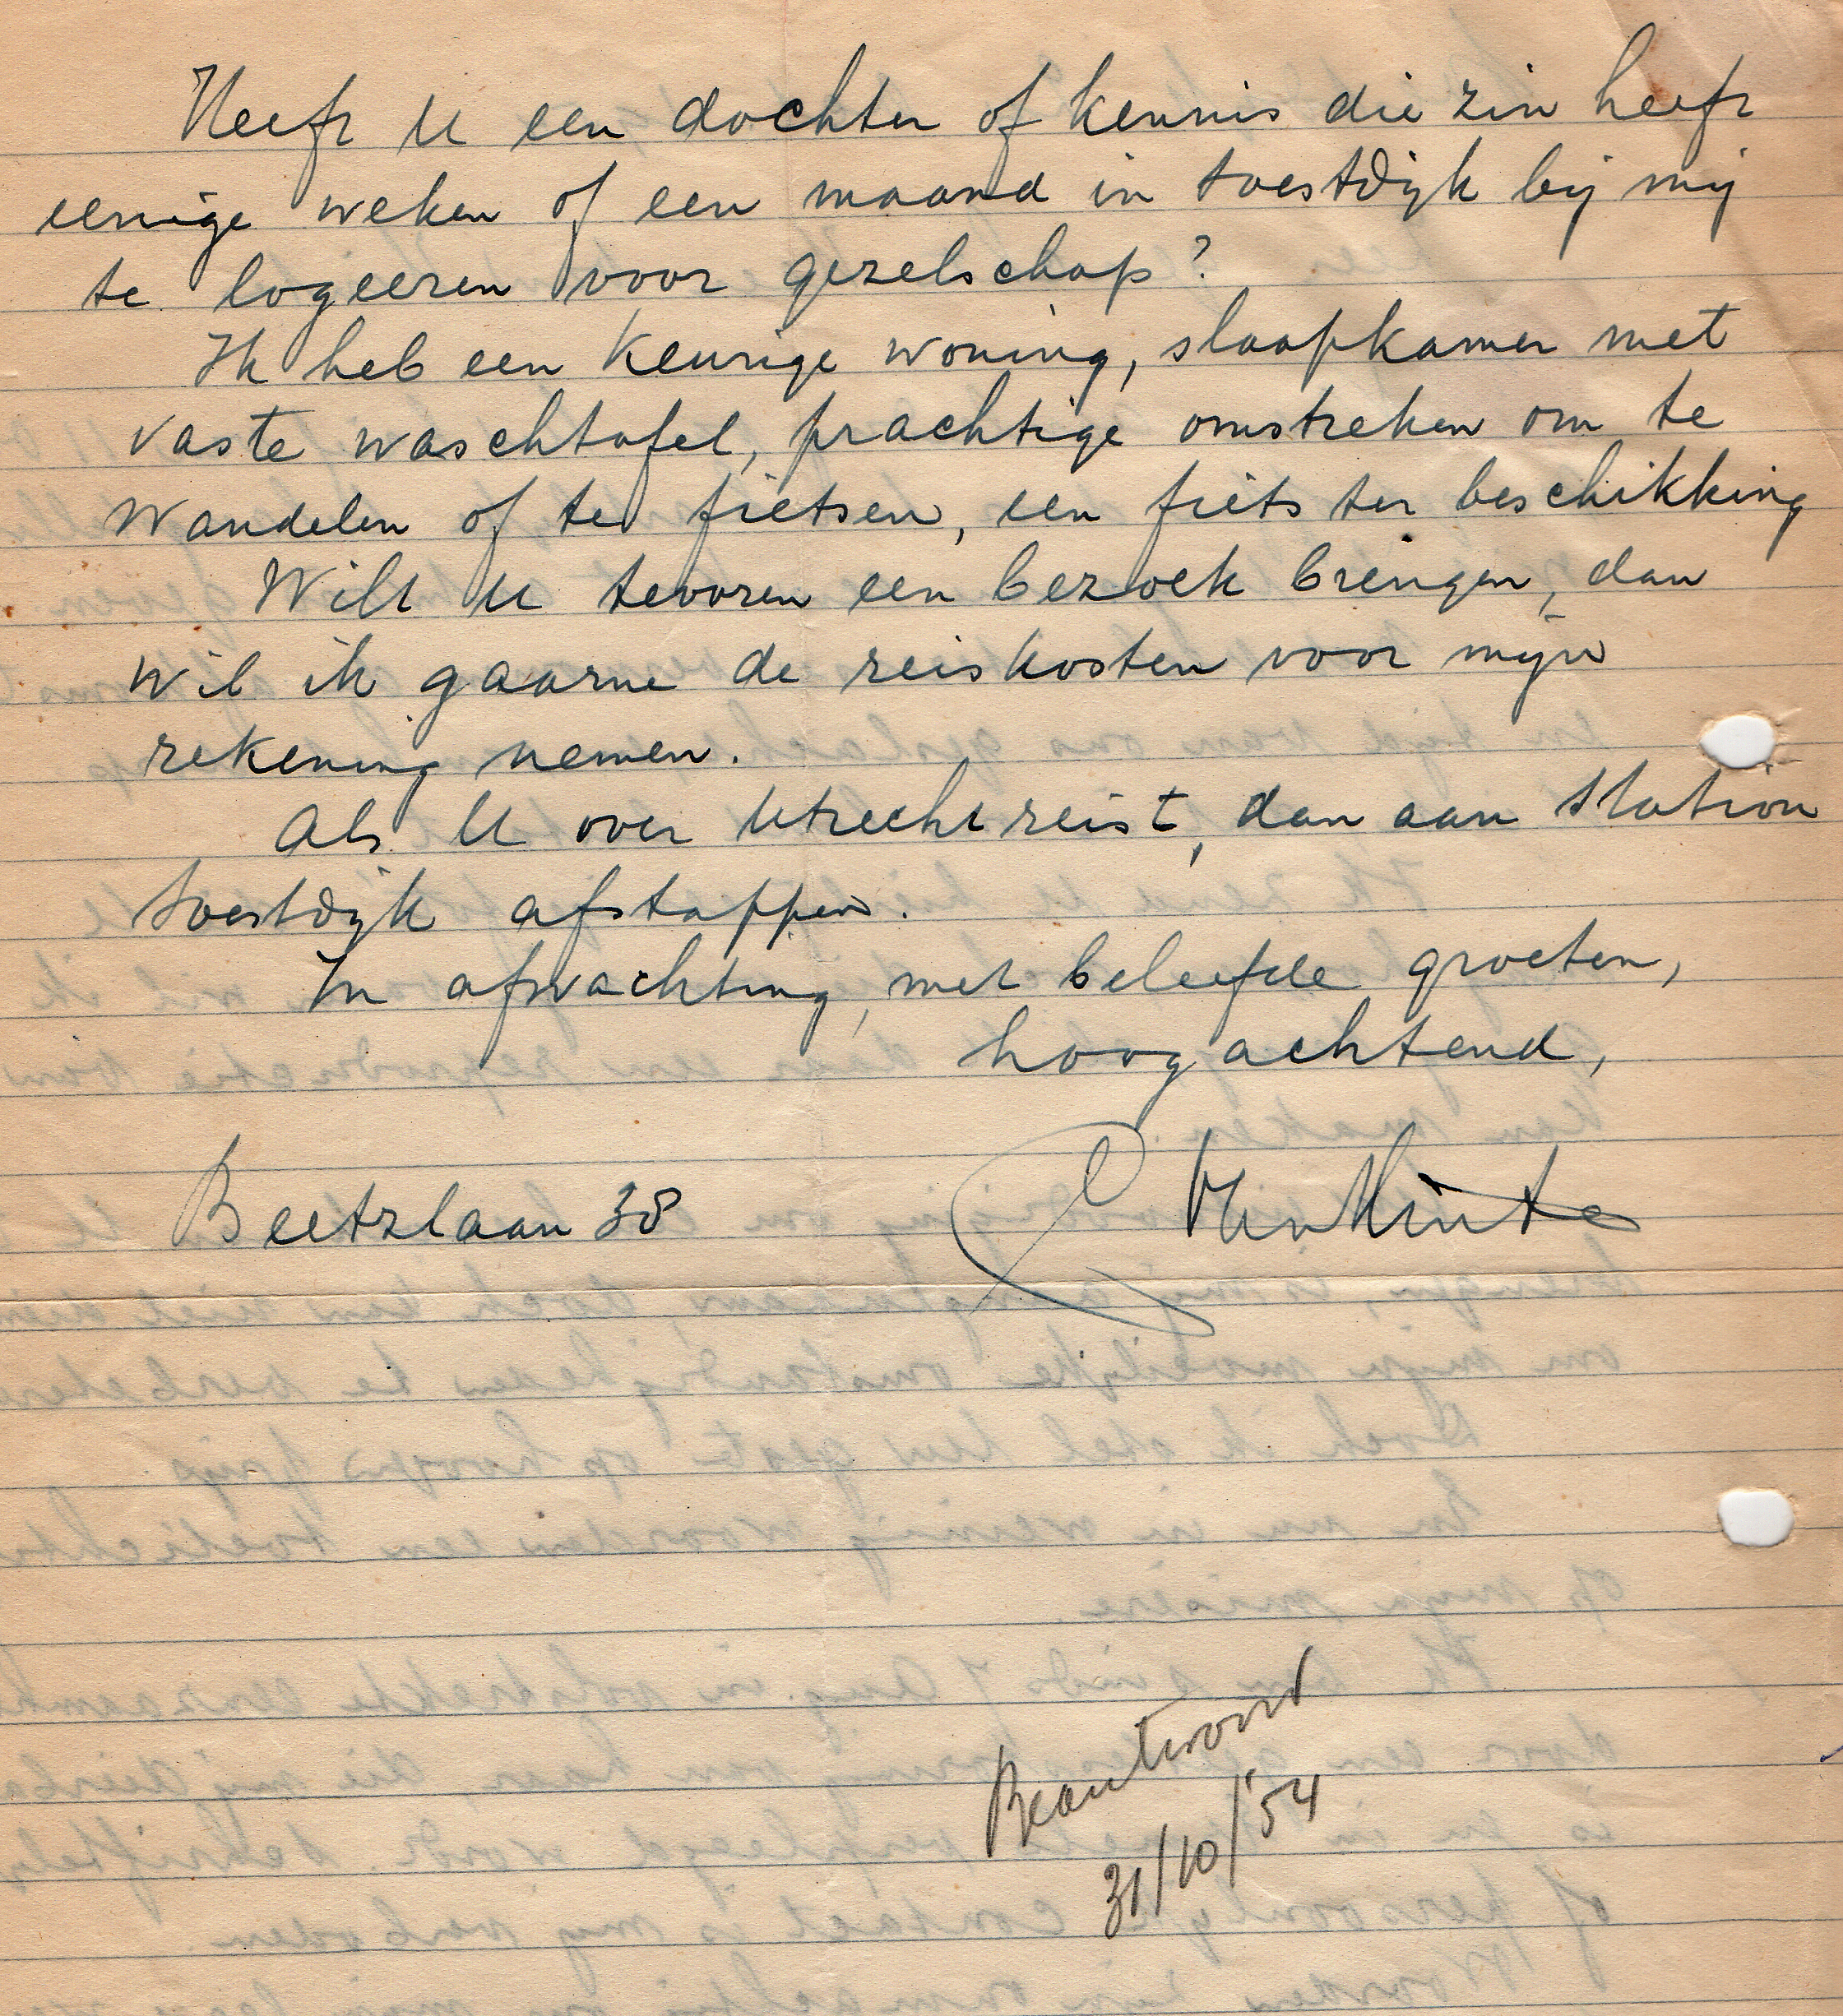 Heeft U een dochter of kennis die zin heeft
eenige weken of een maand in Soestdijk bij mij
te logeeren voor gezelschap?
Ik heb een keurige woning, slaapkamer met
vaste waschtafel, prachtige omstreken om te
wandelen of te fietsen, een fiets ter beschikking
Wilt U tevoren een bezoek brengen, dan
wil ik gaarne de reiskosten voor mijn
rekening nemen.
Als U over Utrecht reist, dan aan Station
Soestdijk afstappen.
In afwachting, met beleefde groeten,
hoogachtend,
Beetzlaan 38
Beantwoord
31/10/'54